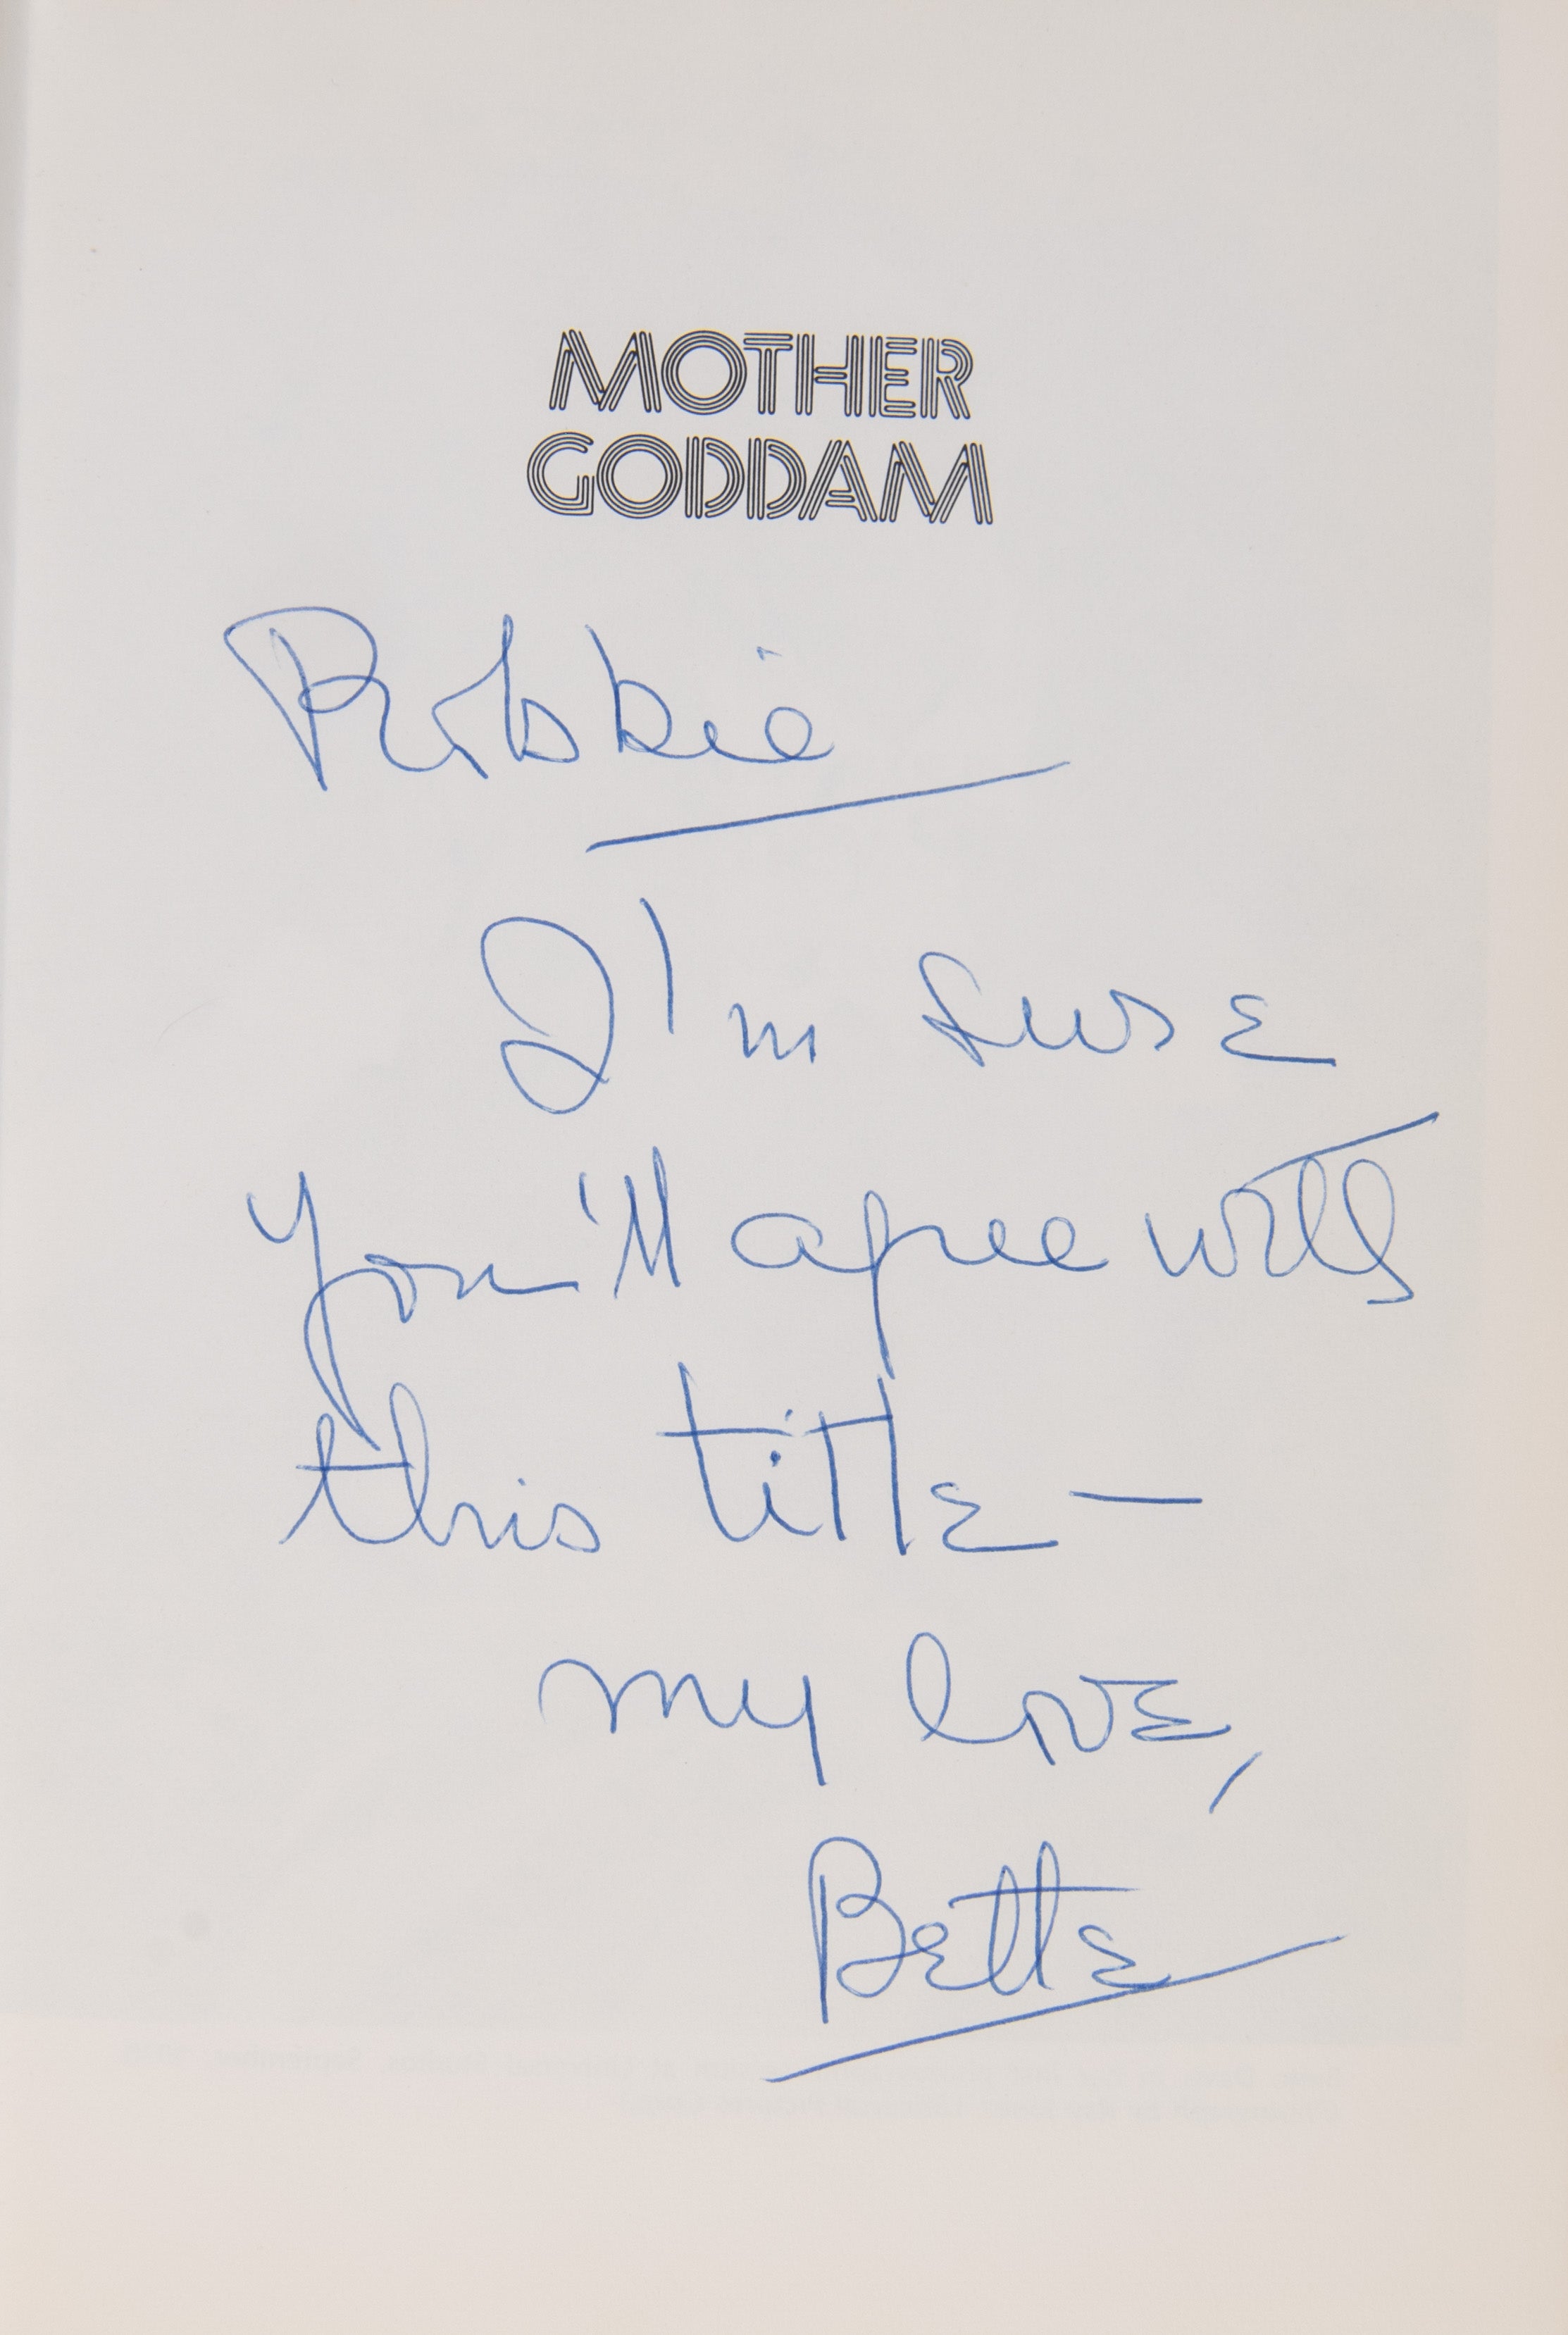 MOTHER
GODDAM
Robbie
I'm sure
you'll agree with
this title —
my love,
Bette